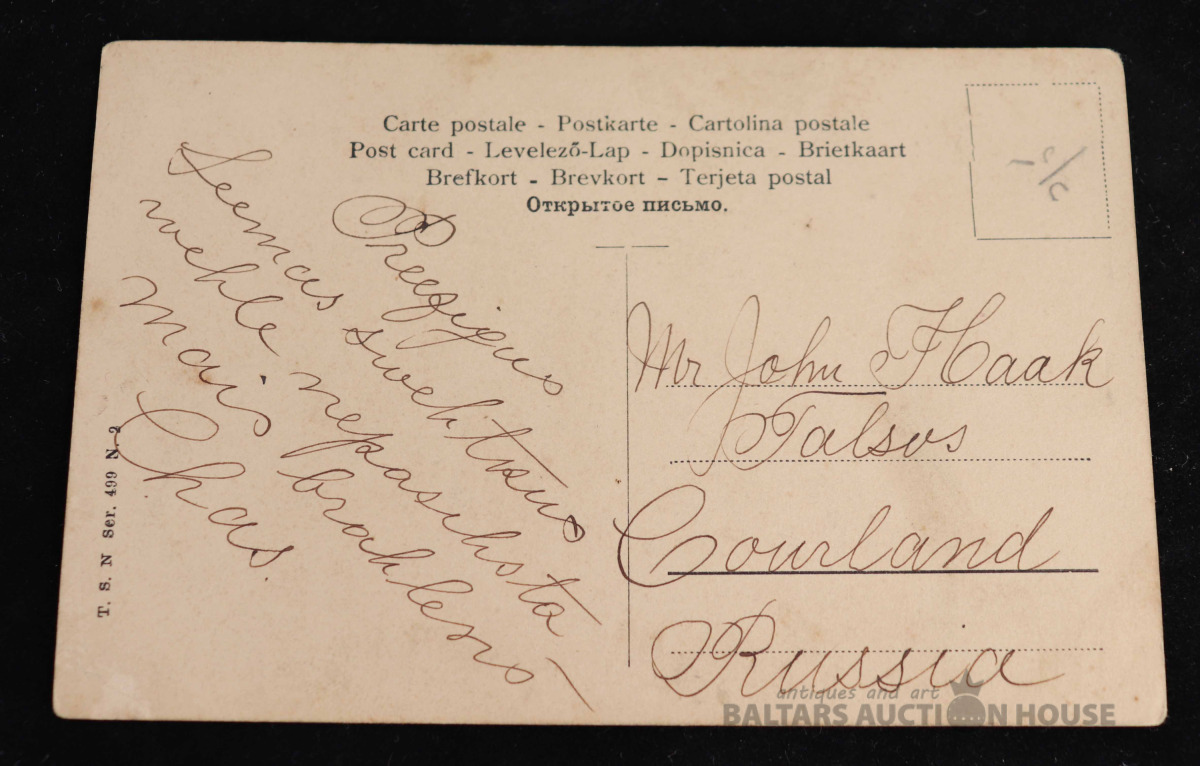 Carte postale - Postkarte - Cartolina postale
Post card - Levelező-Lap - Dopisnica - Brietkaart
Brefkort - Brevkort - Terjeta postal
Открытое письмо.
Preezigus
Seemas swehtkus
wehle nepasihsta
mais brahlens
Chas.
Mr John Haak
Talsos
Courland
Russia
T. S. N Ser. 499 N-2
antiques and art
BALTARS AUCTION HOUSE